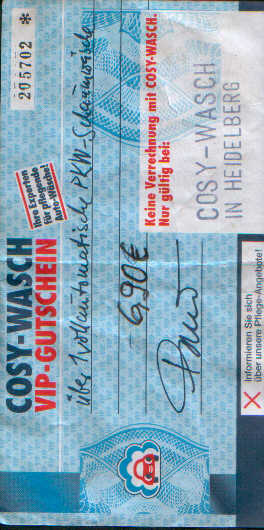 COSY-WASCH
VIP-GUTSCHEIN
Ihre Experten
für pflegende
Auto-Wäsche!
205702 *
über Vollautomatische PKW-Schaumwäsche
6,90€
Keine Verrechnung mit COSY-WASCH.
Nur gültig bei:
COSY-WASCH
IN HEIDELBERG
Informieren Sie sich
über unsere Pflege-Angebote!